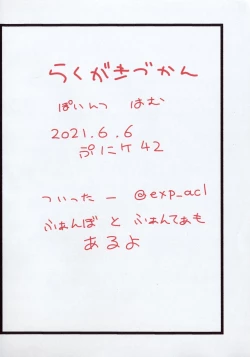 らくがきづかん
ぽいんつ はむ
2021.6.6
ぷにケ42
ついったー @exp_acl
ふぁんぼと ふぁんてぃも
あるよ